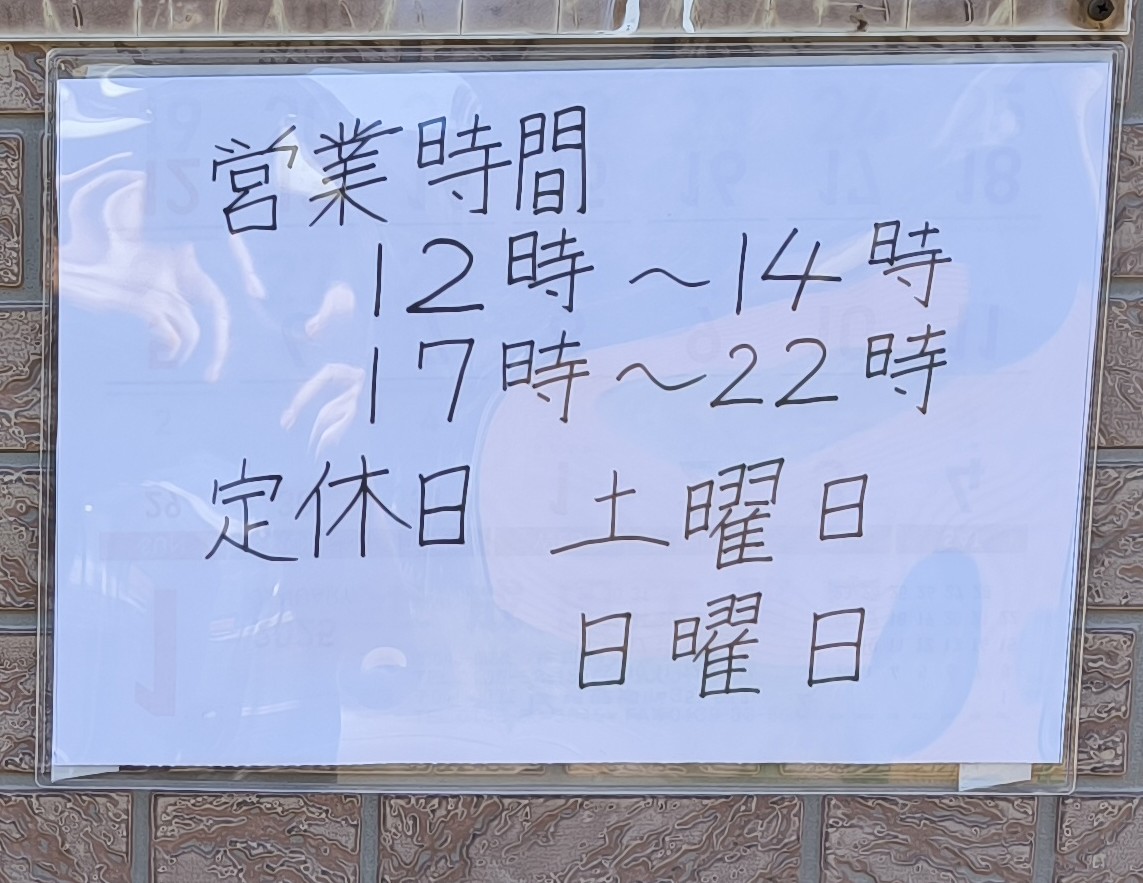 営業時間
12時～14時
17時～22時
定休日 土曜日
日曜日